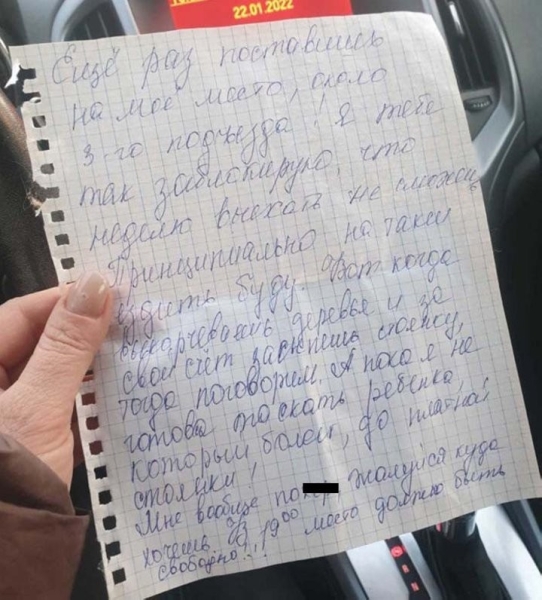 22.01.2022
Ещё раз поставишь
на моё место, около
3-го подъезда! Я тебе
так заблокирую, что
неделю выехать не сможешь
Принципиально на такси
ездить буду. Вот когда
выкорчеваешь деревья и за
свой счёт засыпешь стоянку,
тогда поговорим. А пока я не
готова таскать ребёнка,
которым болеи, до платной
стоянки!
Мне вообще по жалуйся куда
хочешь В 19⁰⁰ место должно быть
свободно!!!